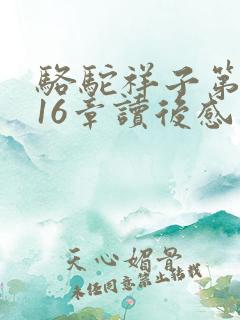 駱駝祥子第
16章讀後感
天心媚骨
未任同意禁止转载